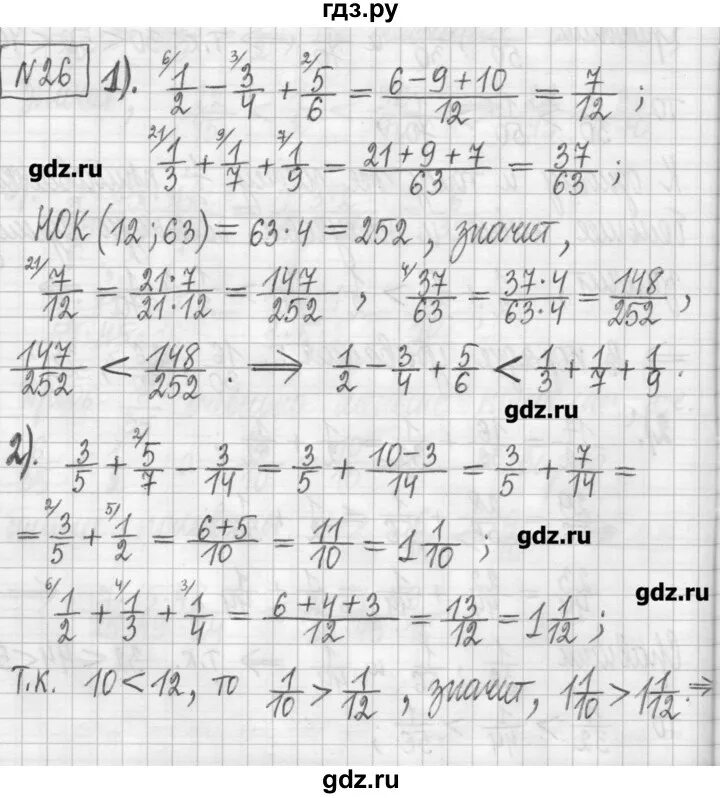 гдз.ру
№26 1). ⁶⁄1/2 − ³⁄3/4 + ²⁄5/6 = (6−9+10)/12 = 7/12 ;
²¹⁄1/3 + ⁹⁄1/7 + ⁷⁄1/9 = (21+9+7)/63 = 37/63 ;
gdz.ru
НОК(12;63) = 63·4 = 252, значит,
²¹⁄7/12 = (21·7)/(21·12) = 147/252 , ⁴⁄37/63 = (37·4)/(63·4) = 148/252 ,
147/252 < 148/252 . ⟹ 1/2 − 3/4 + 5/6 < 1/3 + 1/7 + 1/9 .
gdz.ru
2). 3/5 + ²⁄5/7 − 3/14 = 3/5 + (10−3)/14 = 3/5 + 7/14 =
= ²⁄3/5 + ⁵⁄1/2 = (6+5)/10 = 11/10 = 1 1/10 ;
gdz.ru
gdz.ru
⁶⁄1/2 + ⁴⁄1/3 + ³⁄1/4 = (6+4+3)/12 = 13/12 = 1 1/12 ;
т.к. 10 < 12, то 1/10 > 1/12 , значит, 1 1/10 > 1 1/12 . ⇒
gdz.ru